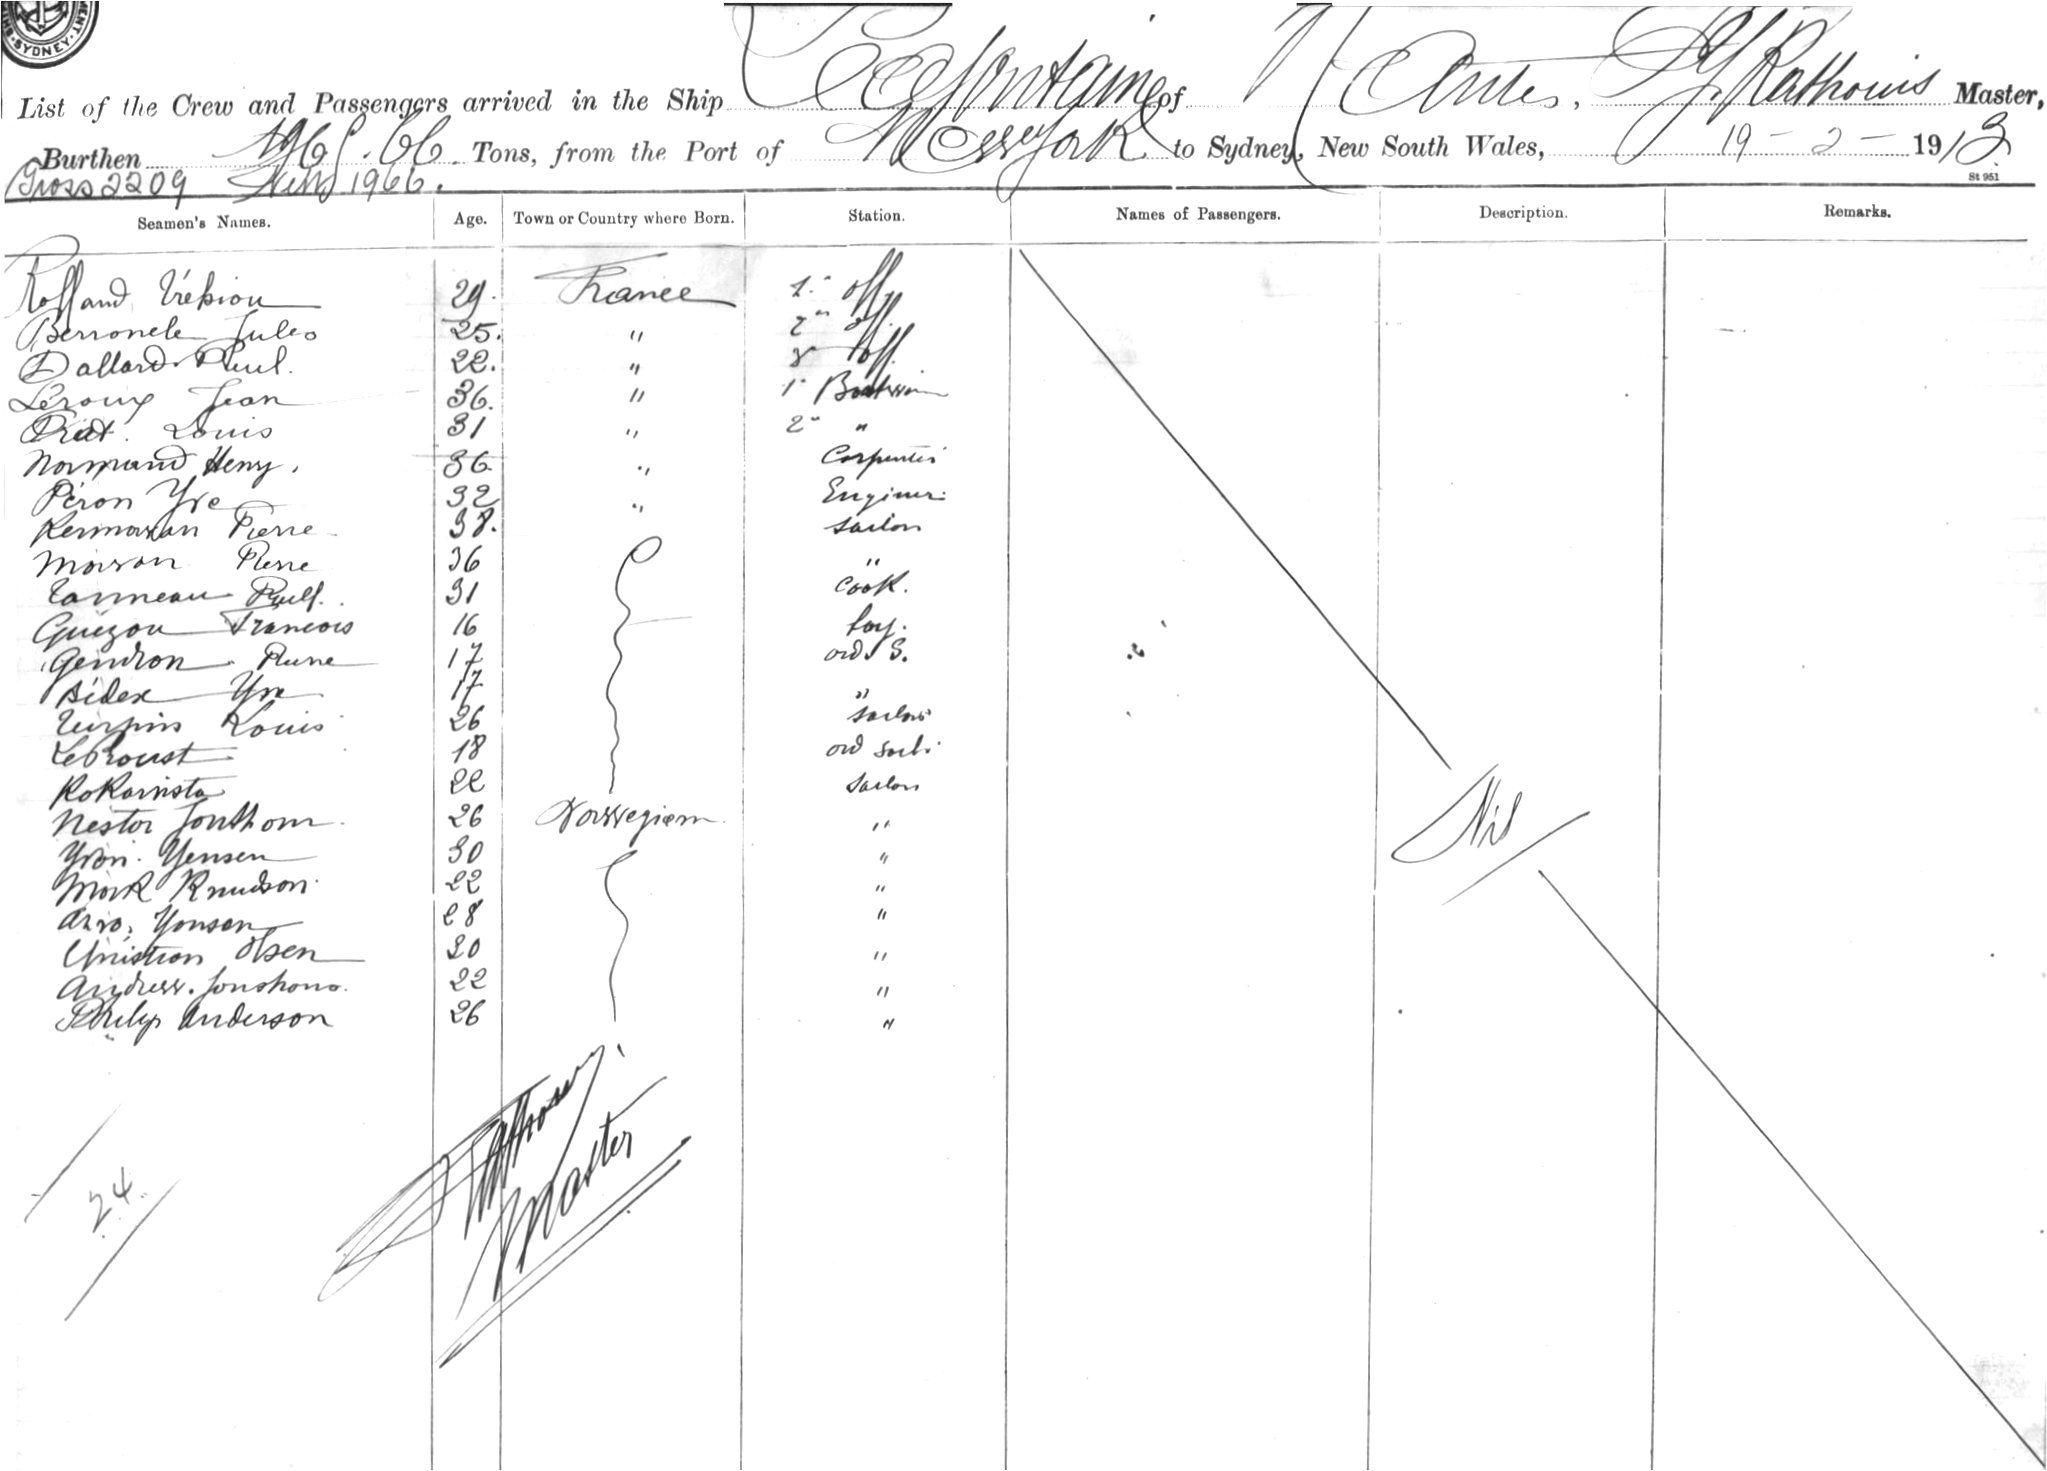 SYDNEY
List of the Crew and Passengers arrived in the Ship Lafontaine of Nantes, Rathouis Master,
Burthen 1965.66 Tons, from the Port of New York to Sydney, New South Wales, 19-2-1913
Gross 2209 Nett 1966.
St 951
Seamen's Names. Age. Town or Country where Born. Station. Names of Passengers. Description. Remarks.
Rolland 29. France 1" off.
Jules 25. " 2" off.
Dallard Paul. 22. " 3" off.
Leroux Jean 36. " 1" Boatswain
Priat. Louis 31 " 2" "
Normand Henry. 36 " Carpenter
Peron Yve 32 " Enginer.
Kermoran Pierre 38. Sailor
Moisan Pierre 36 "
Tanneau Paull. 31 Cook.
Guezou Francois 16 boy.
Gendron Pierre 17 ord S.
Bidex Yve 17 "
Turpin Louis 26 sailor
LeProust 18 ord sail.
Kokarista 22 Sailor
Nestor Jonthom. 26 Norwegian "
Yvon. Yensen 30 "
Mark Knudson. 22 "
Yonsen 28 "
Christian Olsen 20 "
Andrew. Jonshono. 22 "
Philip Anderson 26 "
Nil
Master
24.